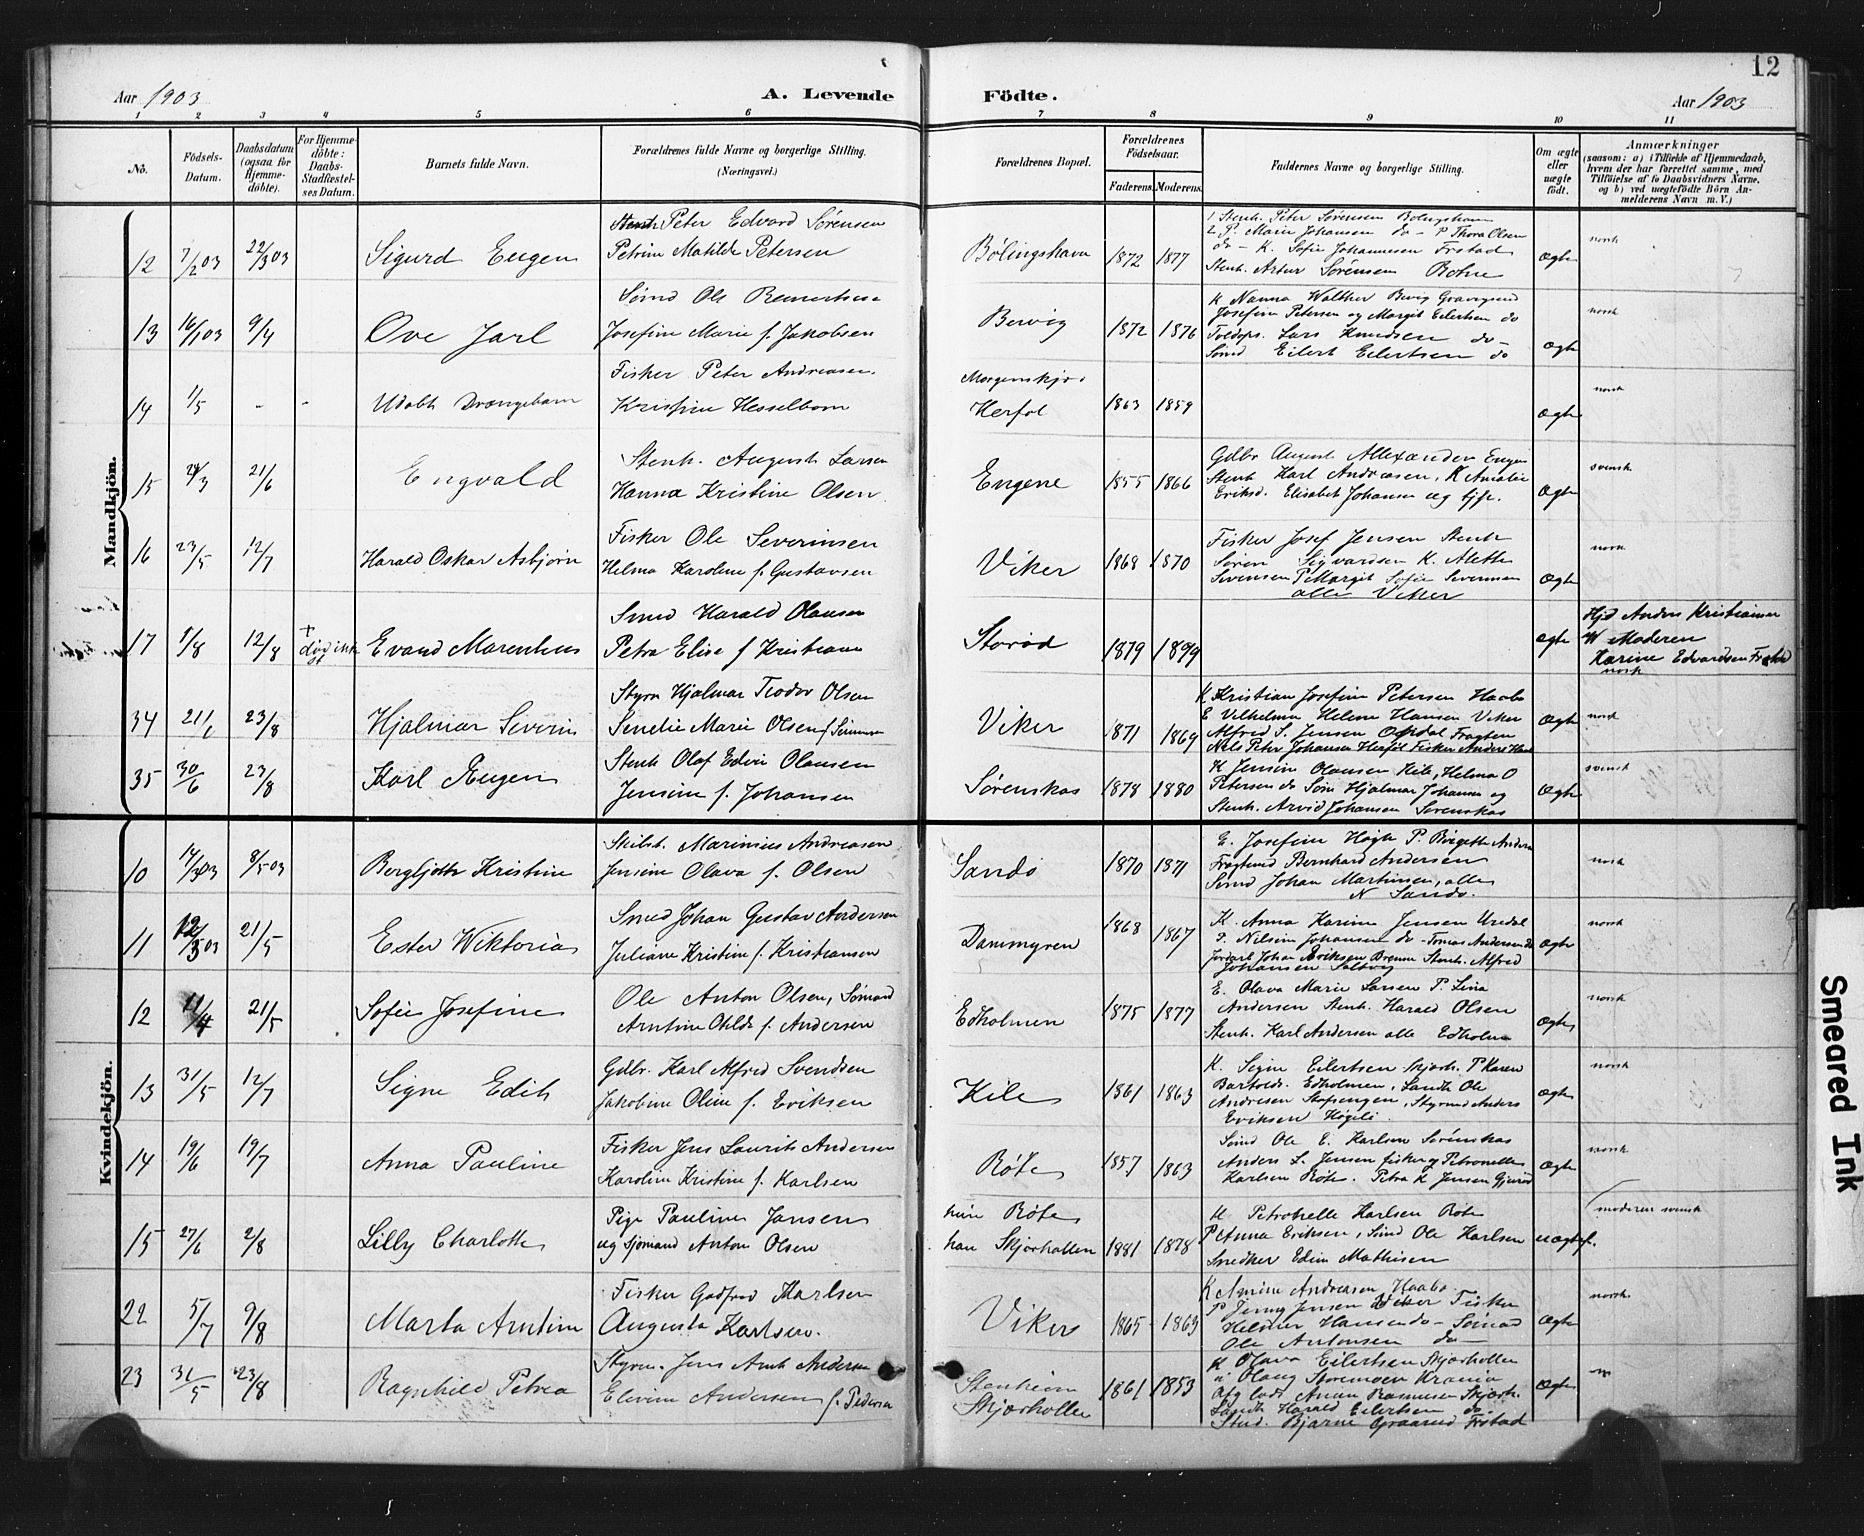 12
Aar 1903
A. Levende
Födte.
Aar 1903
1 2 3 4 5 6 7 8 9 10 11
No.
Födsels-Datum.
Daabsdatum (ogsaa for Hjemme-döbte).
For Hjemme-döbte: Daabs-Stadfæstel-ses Datum.
Barnets fulde Navn.
Forældrenes fulde Navne og borgerlige Stilling. (Næringsvei.)
Forældrenes Bopæl.
Forældrenes Födselsaar.
Faderens. Moderens.
Faddernes Navne og borgerlige Stilling.
Om ægte eller uægte født.
Anmærkninger
(saasom: a) i Tilfælde af Hjemmedaab, hvem der har forrettet samme, med Tilföielse af to Daabsvidners Navne, og b) ved uægtefödte Börn An-melderens Navn m. V.)
Mandkjön.
12 7/2 03 22/3 03 Sigurd Eugen
Peter Edvard Sørensen
Petrine Matilde Petersen
Bølingshavn 1872 1877
1 Stenh. Peter Sørensen Bølingshavn
2 P. Marie Johansen do - P Thora Olsen
do - K. Sofie Johannesen Frstad
Stenh. Artur Sørensen
Ægte norsk
13 16/1 03 9/4 Ove Jarl
Sømd Ole
Josefine Marie f. Jakobsen
Bervig 1872 1876
K Nanna Walther Bevig
Josefine Petersen og Margit Eilertsen do
Toldops. Lars Knudsen do-
Sømd Eilert Eilertsen do
Ægte norsk
14 1/5 - - Udøbt Drengebarn
Fisker Peter Andreasen.
Kristine Hesselbom
Herføl 1863 1859
Ægte norsk
15 21/6 Engvald
Stenh. August Larsen
Hanna Kristine Olsen
Engene 1855 1866
Gdbr August Allexander Engen
Stenh Karl Andreasen, K Amalie
Eriksd. Elisabet Johansen
Ægte svensk
16 23/5 12/7 Harald Oskar Asbjørn
Fisker Ole Severinsen
Helma Karoline f. Gustavsen
Viker 1868 1870
Fisker Josef Jensen Stenh
Søren Sigvardsen K. Alette
Sevensen P Margit Sofie Severinsen
alle Viker
Ægte norsk
17 1/8 12/8 Evand Marentius
Smed Harald Olausen
Petra Elise f Kristians
Storød 1879 1899
Ægte
Hjd Anders Kristiansen
W Moderen
Karine Edvardsen
norsk
34 23/8 Hjalmar Severin
Styrm Hjalmar Teodor Olsen
Senelie Marie Olsen
Viker 1871 1869
K Kristian Josefine Petersen Haabo
E Vilhelmine Helene Hansen Viker
Alfred S. Jensen
Nils Peter Johansen Herføl Fisker Anders
Ægte norsk
35 30/6 23/8 Karl Eugen
Stenh Olaf Edvin Olausen
Jensine f. Johansen
Sørenskas 1878 1880
K Jensine Olausen Kile, Helma O
Petersen do Søm Hjalmar Johansen og
Stenh. Arvid Johansen Sørenskas
Ægte svensk
Kvindekjön.
10 14/3 03 8/5 03 Bergljotte Kristine
Skilst. Marinius Andreasen
Jensine Olava f. Olsen
Sandø 1870 1871
E. Josefine Høgh P. Birgitte Andersen
Bernhard Andersen
Sømd Johan Martinsen, alle
N Sandø.
norsk
11 12/3 03 21/5 Ester Wiktoria
Smed Johan Gustav Andersen
Juliane Kristine f. Kristiansen
Dammyren 1868 1867
K. Anna Karine Jensen Uredal
P. Nilsine Johansen do - Tomas Andersen do
Johan Eriksen Brenne Stenh. Alfred
Johansen Saltvig
Ægte norsk
12 11/4 21/5 Sofie Josefine
Ole Anton Olsen, Sømand
Arntine Otilde f. Andersen
Edholmen 1875 1877
E. Olava Marie Larsen P. Lina
Andersen Stenh. Harald Olsen
Stenh. Karl Andersen alle Edholmen
Ægte norsk
13 31/5 12/7 Signe Edith
Gdbr. Karl Alfred Svendsen
Jakobine Oline f. Eriksen
Kile 1861 1863
K. Signe Eilertsen Skjærh. P Karen
Bartolds. Edholmen, Sandh Ole
Andresen Stafsengen, Styrmd Anders
Eriksen Høgeli.
Ægte norsk
14 19/6 19/7 Anna Pauline
Fisker Jens Laurits Andersen
Karoline Kristine f. Karlsen
Røte 1857 1863
Sømd Ole E. Karlsen Sørenskas
Anders L. Jensen fisker og Petronelle
Karlsen Røte. Petra K Jensen
Ægte norsk
15 27/6 2/8 Lilly Charlotte
Pige Pauline Jansen
og Sjømand Anton Olsen
hun Røte
han Skjærhollen 1881 1878
K Petronelle Karlsen Røte
P Anna Eriksen, Sømd Ole Karlsen
Snedker Edin Mathisen
uægte moderen svensk
22 5/7 9/8 Marta Arntine
Fisker Godfred Karlsen
Augusta Karlsen.
Viker 1865 - 1869
K Amine Andreasen Haabo
P Jenny Jensen Viker Fisker
Helmer Hansen do - Sømad
Ole Antonsen do -
Ægte norsk
23 31/5 23/8 Ragnhild Petrea
Styrm. Jens Anth Andersen
Elevine Andersen f. Pedersen
Stenheim
Skjærhollen 1861 1853
K Olava Eilertsen Skjærhollen
Olaug Sørensen
Anna Rasmussen Skjærh.
Sandh Harald Eilertsen do.
Stud. Bjarne Graarud Frstad
Ægte
Smeared Ink